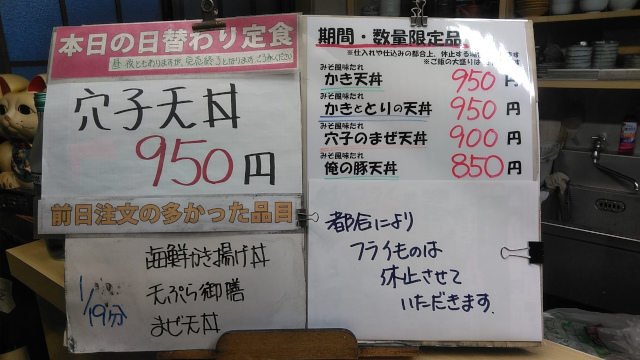 本日の日替わり定食
穴子天丼
950円
前日注文の多かった品目
海鮮かき揚げ丼
天ぷら御膳
まぜ天丼
1/19分
期間・数量限定品
※仕入れや仕込みの都合上、休止する場
※ご飯の大盛りは
みそ風味たれ
かき天丼 950円
みそ風味たれ
かきととりの天丼 950円
みそ風味たれ
穴子のまぜ天丼 900円
みそ風味たれ
俺の豚天丼 850円
都合により
フライものは
休止させて
いただきます.